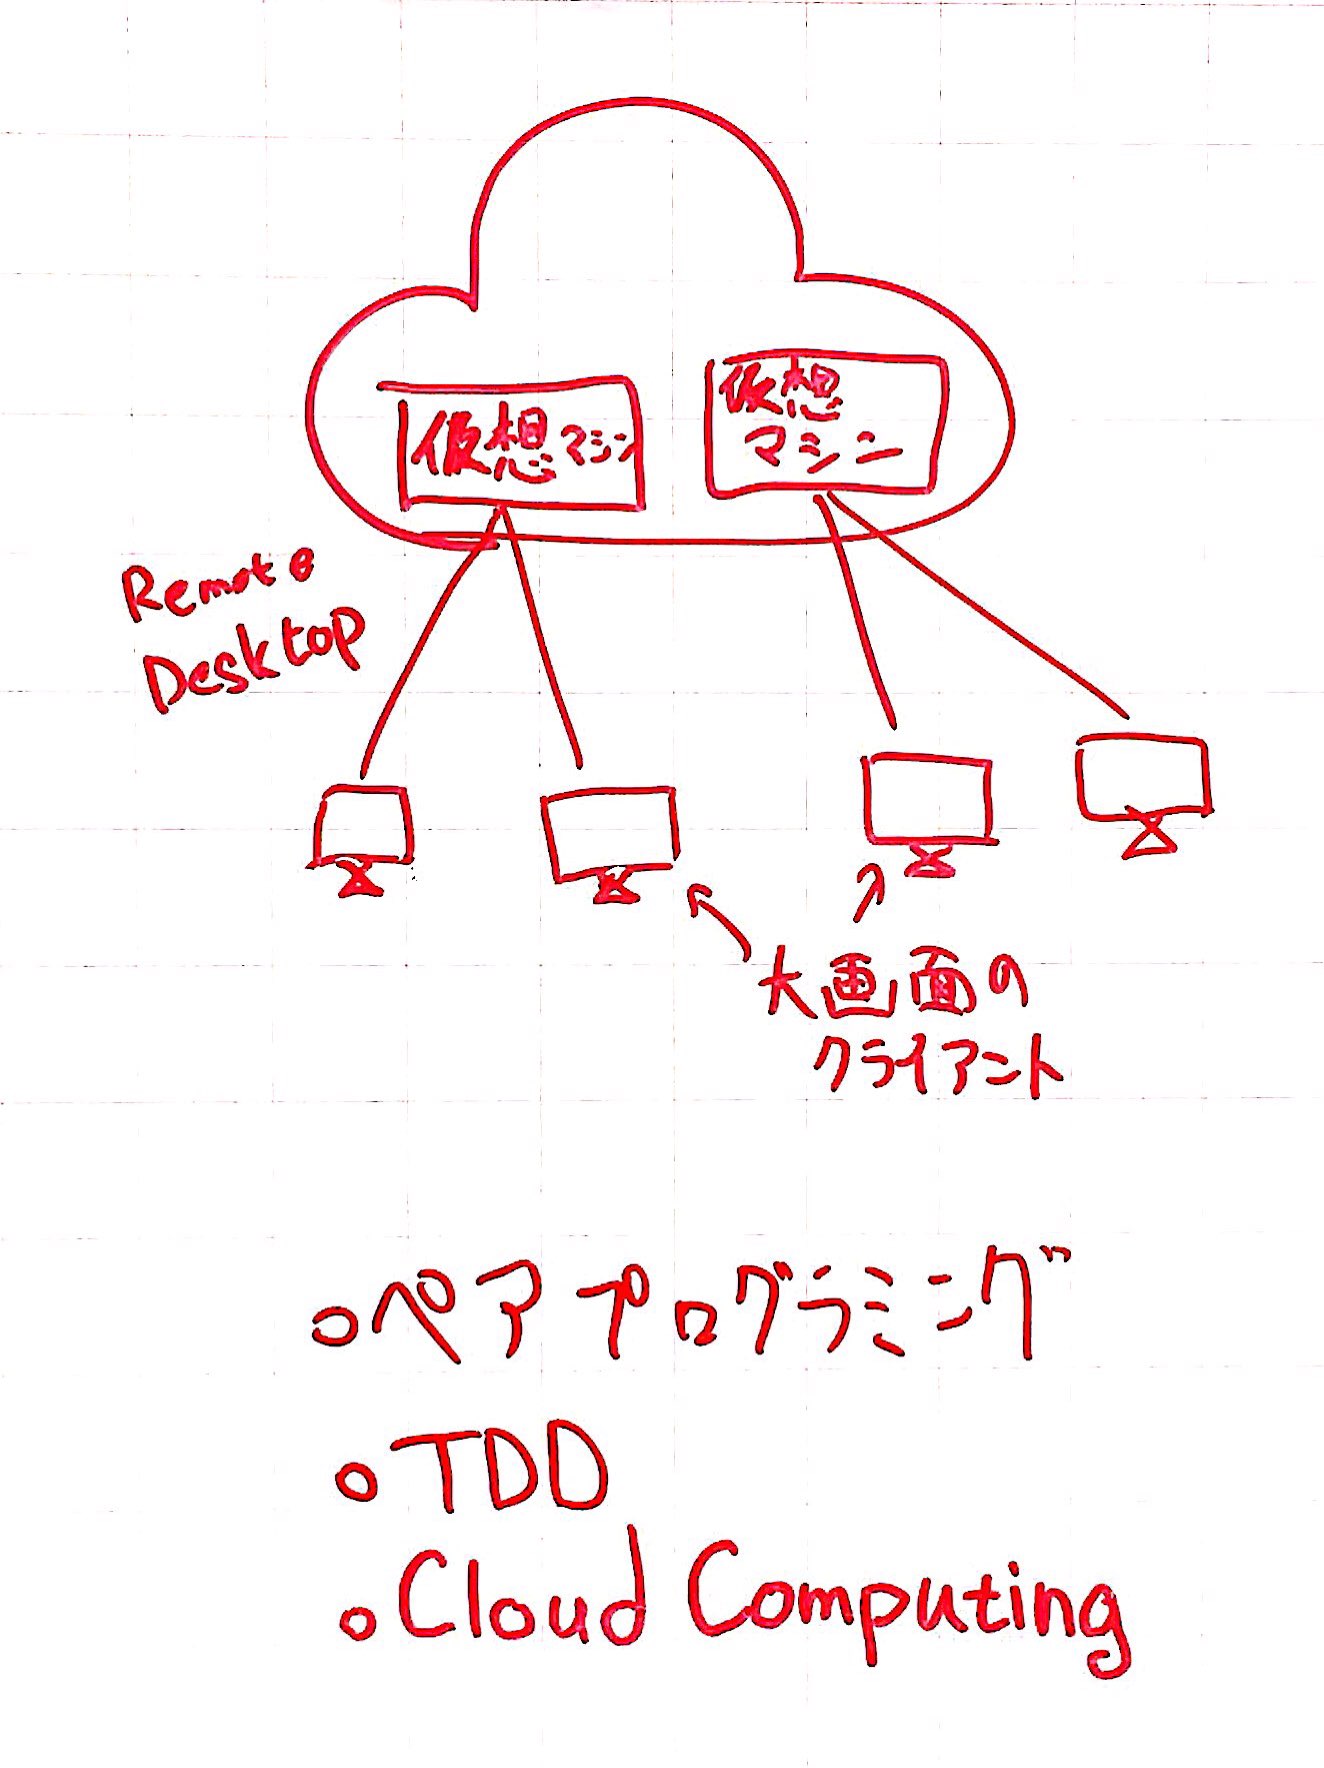 仮想マシン
仮想
マシン
Remote
Desktop
大画面の
クライアント
ペアプログラミング
TDD
Cloud Computing